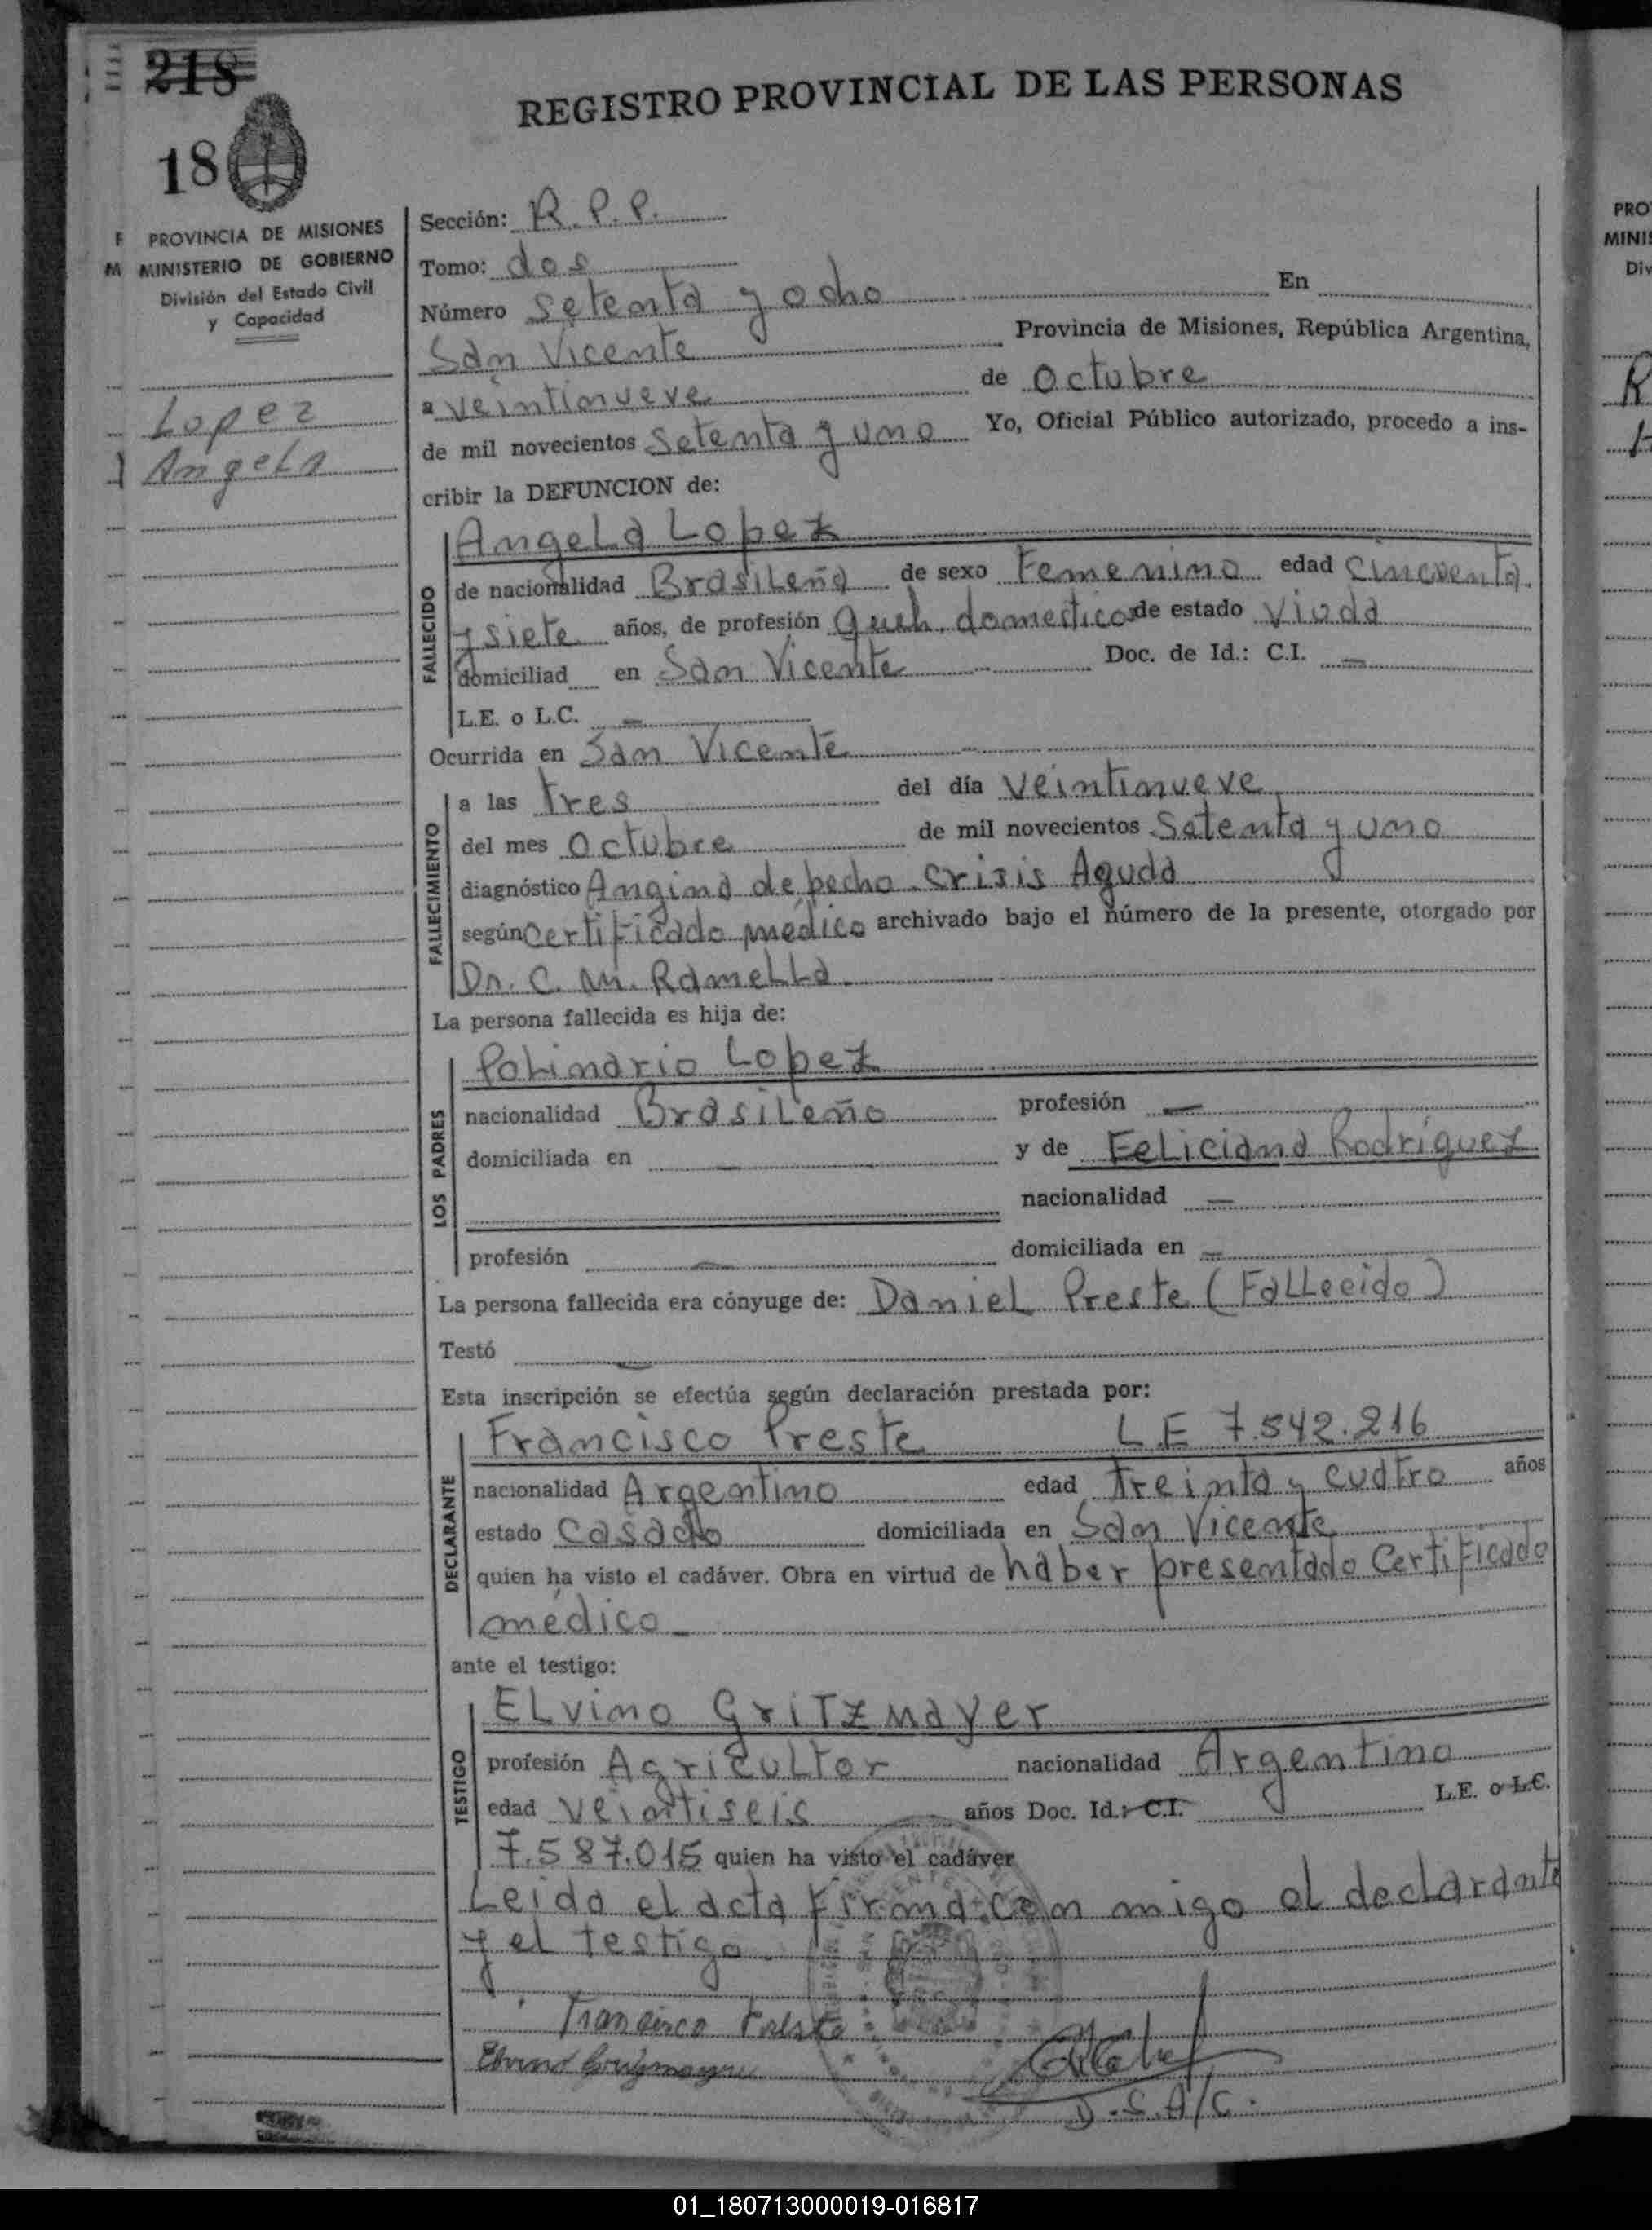 218
18
REGISTRO PROVINCIAL DE LAS PERSONAS
F PROVINCIA DE MISIONES
M MINISTERIO DE GOBIERNO
División del Estado Civil
y Capacidad
Lopez
Angela
Sección: R.P.P.
Tomo: dos
Número setenta y ocho En
San Vicente Provincia de Misiones, República Argentina,
a veintinueve de Octubre
de mil novecientos setenta y uno Yo, Oficial Público autorizado, procedo a ins-
cribir la DEFUNCION de:
FALLECIDO
Angela Lopez
de nacionalidad Brasileña de sexo Femenino edad cincuenta
y siete años, de profesión queh. domesticos de estado Viuda
domiciliad en San Vicente Doc. de Id.: C.I. —
L.E. o L.C. —
Ocurrida en San Vicente
FALLECIMIENTO
a las tres del día veintinueve
del mes Octubre de mil novecientos setenta y uno
diagnóstico Angina de pecho - crisis Aguda
según certificado médico archivado bajo el número de la presente, otorgado por
Dr. C. M. Ramella.
La persona fallecida es hija de:
LOS PADRES
Polinario Lopez
nacionalidad Brasileño profesión —
domiciliada en — y de Feliciana Rodríguez
nacionalidad —
profesión — domiciliada en —
La persona fallecida era cónyuge de: Daniel Preste (Fallecido)
Testó —
Esta inscripción se efectúa según declaración prestada por:
DECLARANTE
Francisco Preste L.E 7.542.216
nacionalidad Argentino edad treinta y cuatro años
estado casado domiciliada en San Vicente
quien ha visto el cadáver. Obra en virtud de haber presentado Certificado
médico -
ante el testigo:
TESTIGO
Elvino Gritzmayer
profesión Agricultor nacionalidad Argentino
edad veintiseis años Doc. Id.: C.I. L.E. o L.C.
7.587.015 quien ha visto el cadáver
Leido el acta firma con migo el declarante
y el testigo.
Francisco Preste
D.S.A/C.
PRO
MINIS
Div
01_180713000019-016817